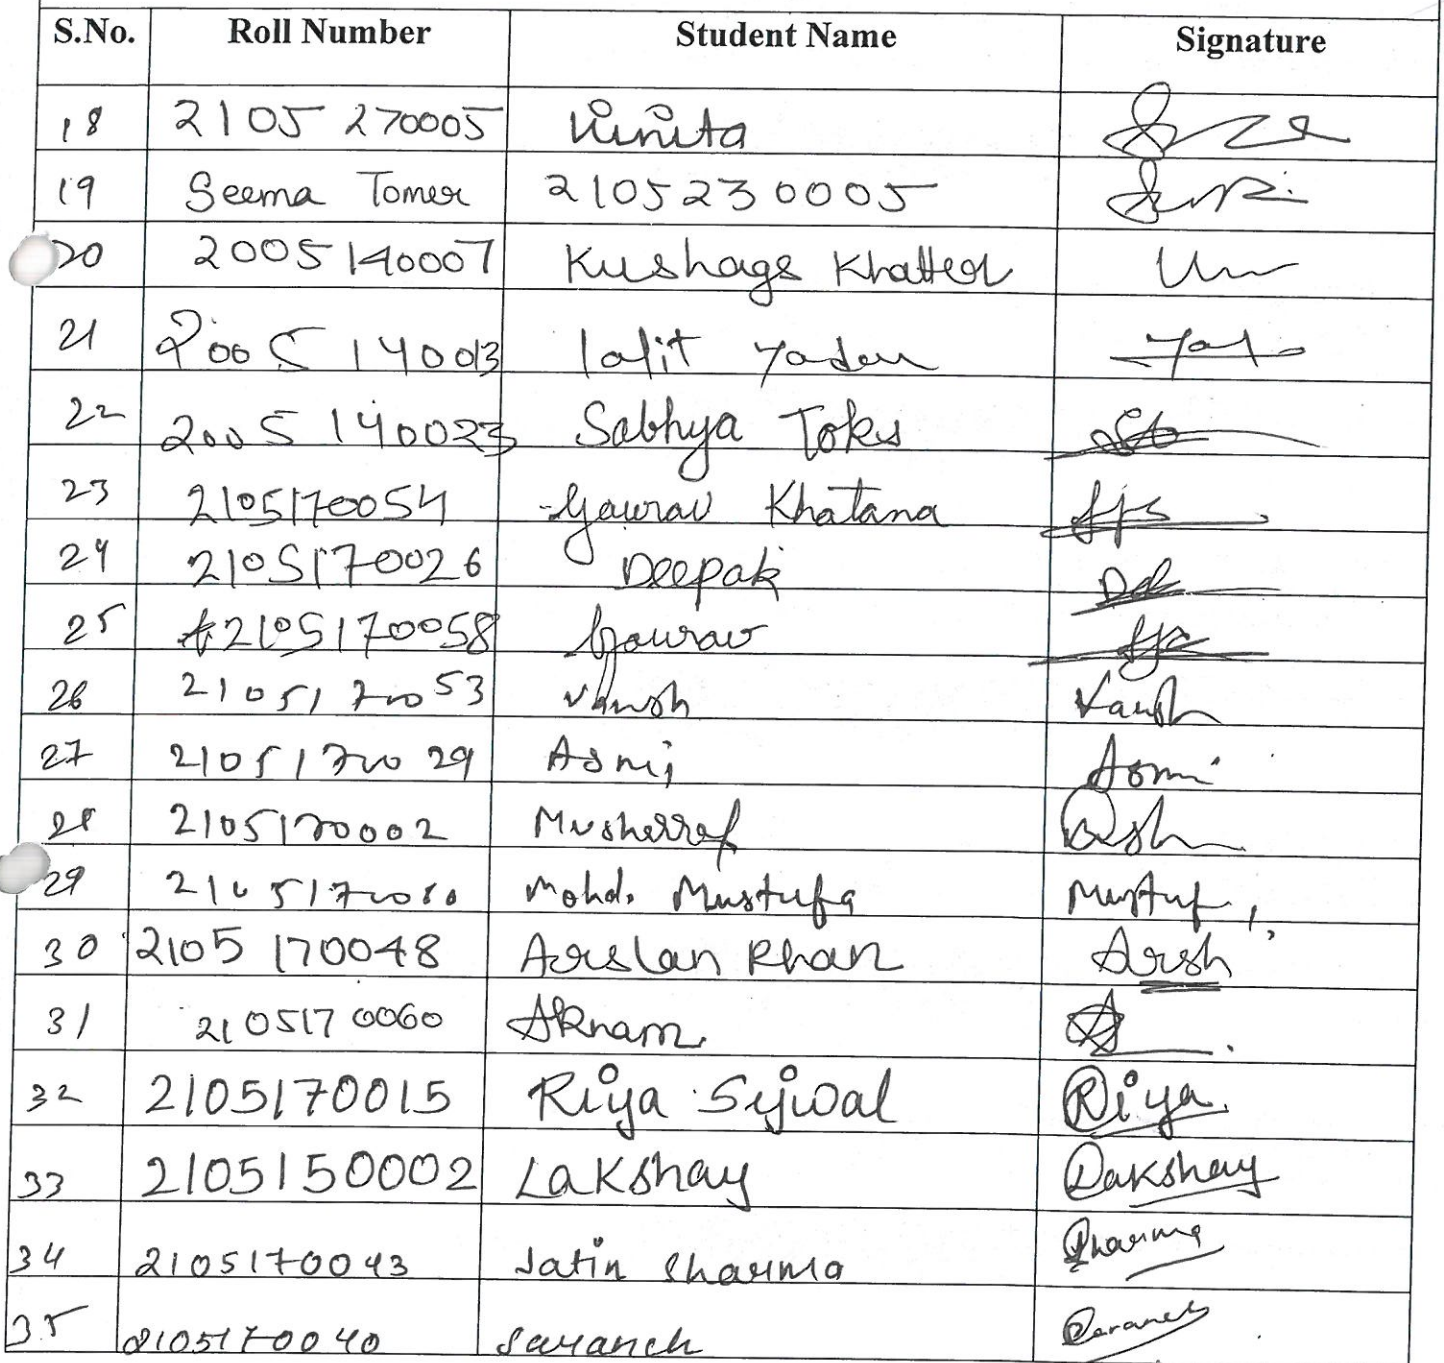 S.No. Roll Number Student Name Signature
18 2105 270005 Vinita
19 Seema Tomer 2105230005
20 2005140007 Kushags Khatter
21 2005 140013 lalit Yadav
22 2005 140023 Sabhya Tokas
23 2105170054 Gaurav Khatana
24 2105170026 Deepak
25 2105170058 Gaurav
26 2105170053 Vansh Vansh
27 2105170029 Asmi Asmi
28 2105170002 Musharraf
29 Mohd. Mustufa Mustuf
30 2105 170048 Arslan Khan Arsh
31 2105170060 Aknam
32 2105170015 Riya Sejwal Riya
33 2105150002 Lakshay Lakshay
34 2105170043 Jatin Sharma Sharma
35 2105170040 Saransh Saransh